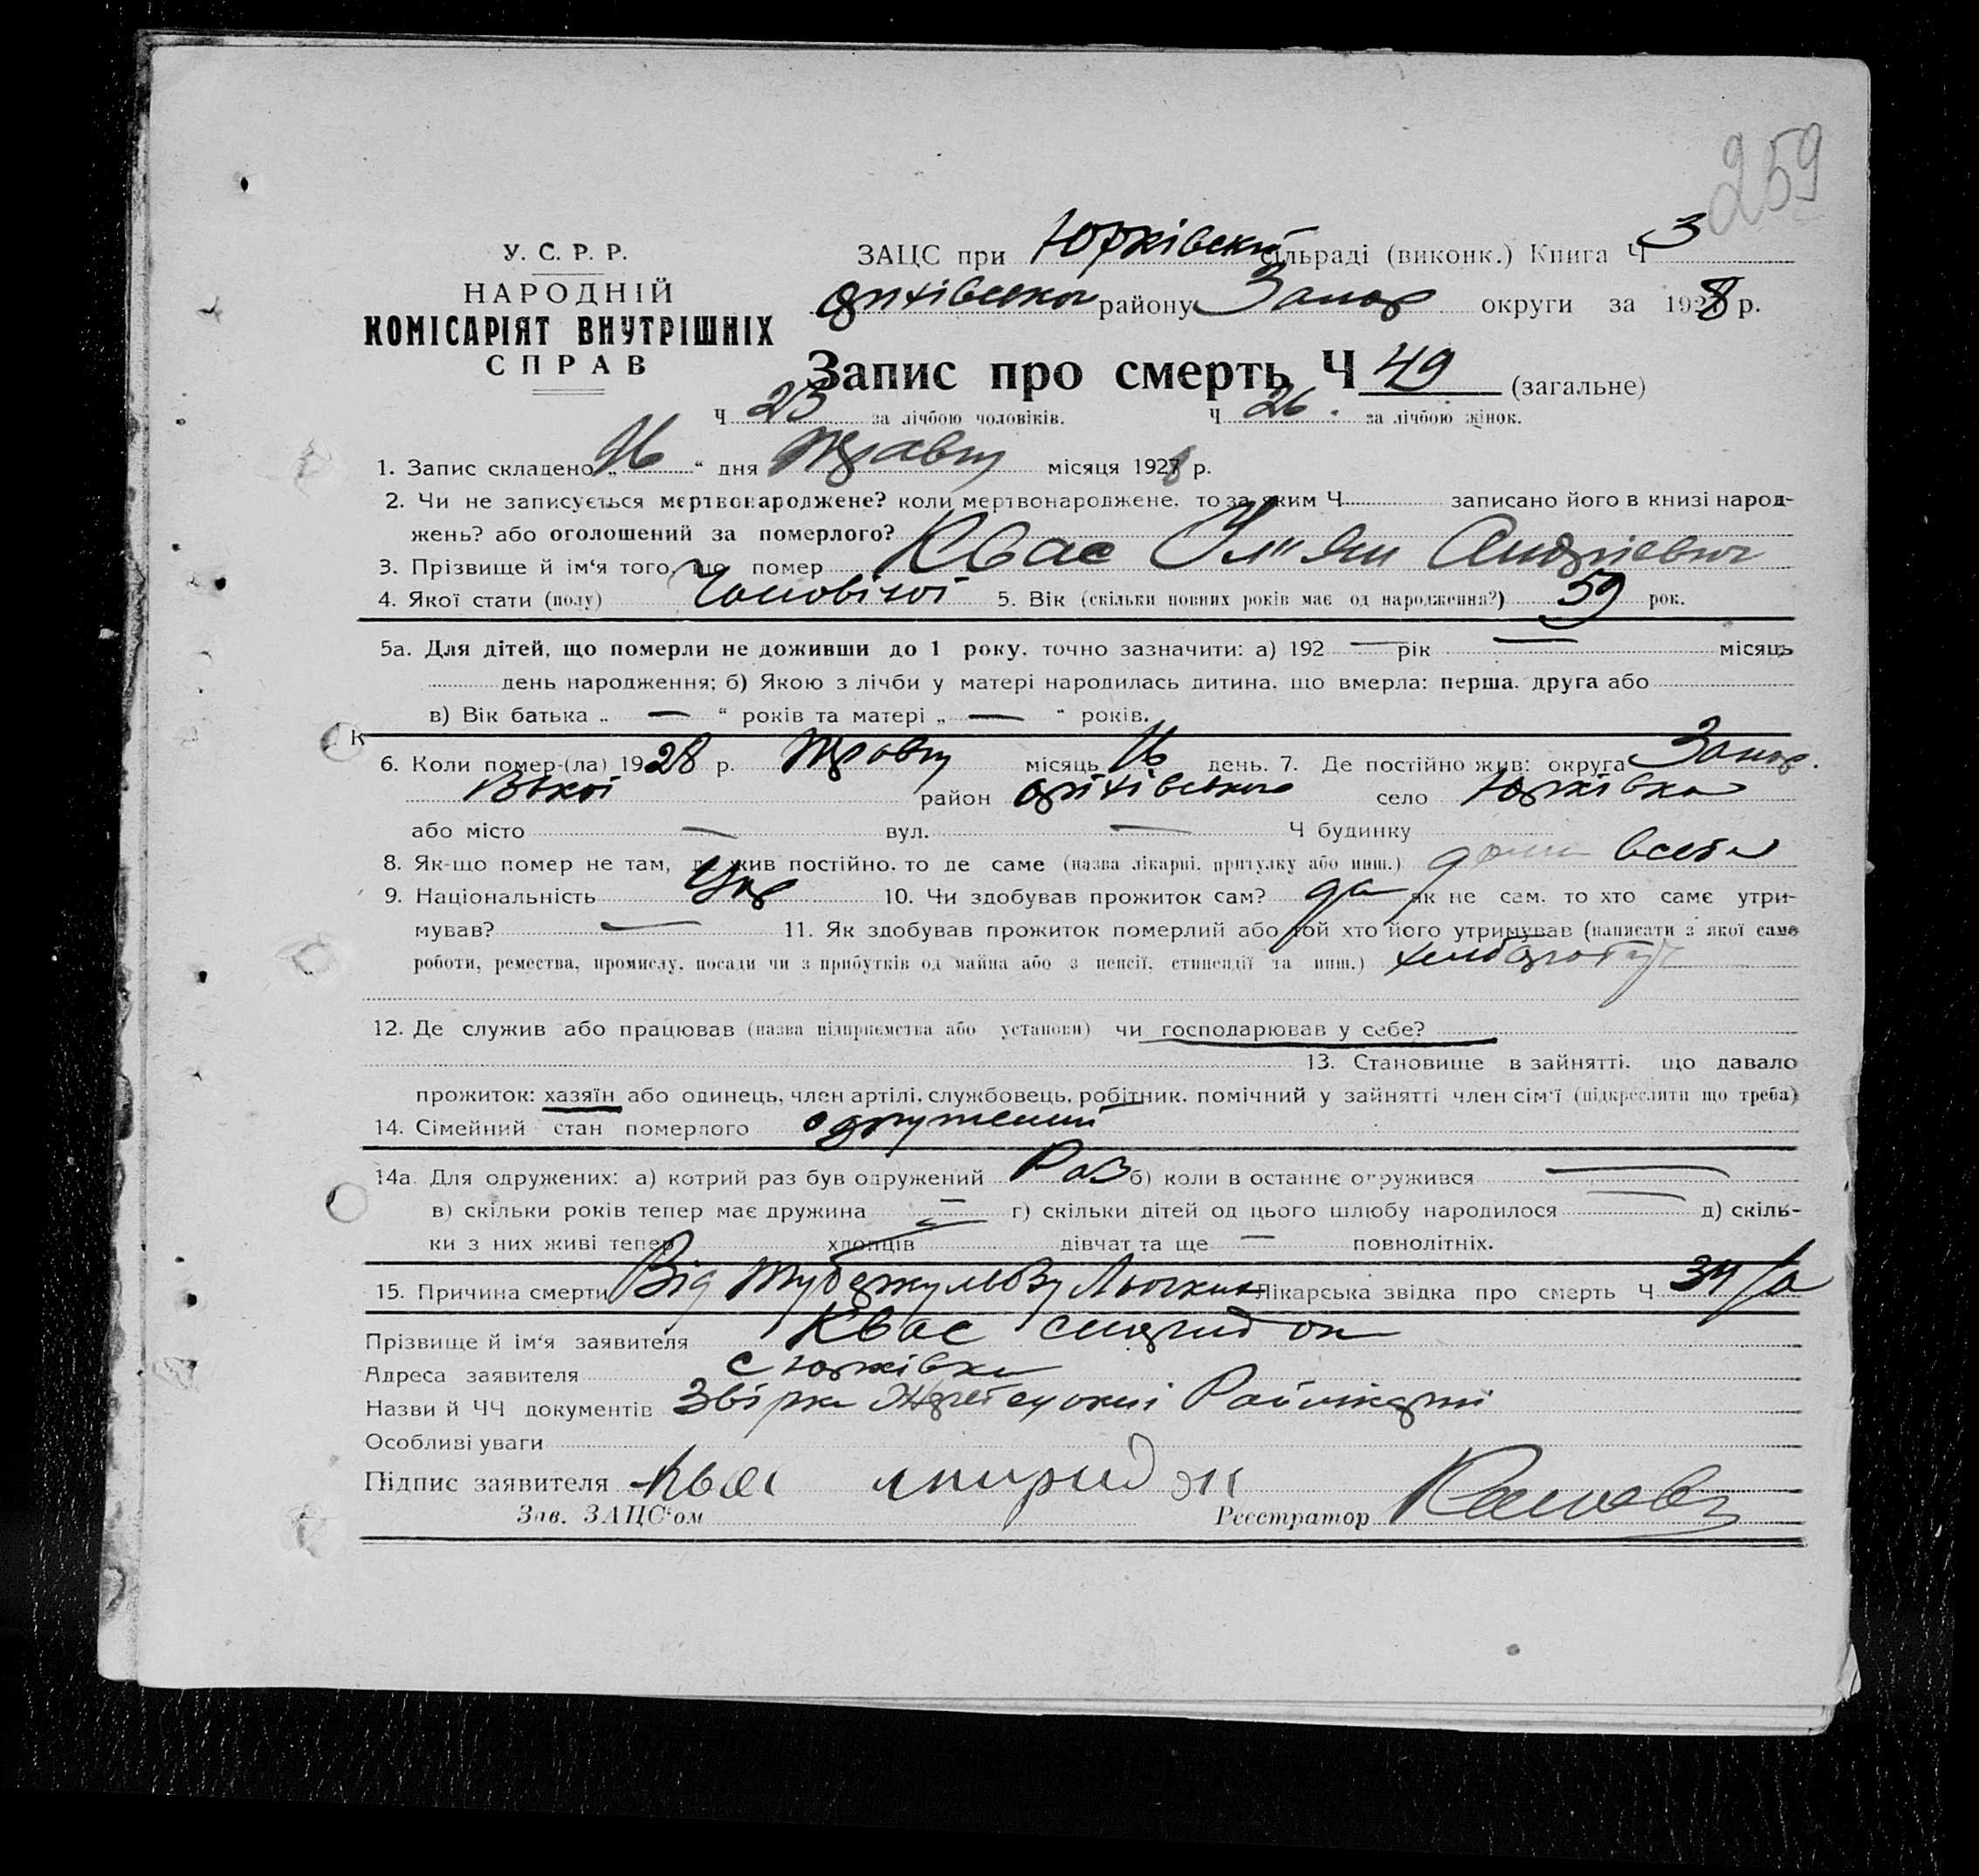 259
У. С. Р. Р.
НАРОДНІЙ
КОМІСАРІЯТ ВНУТРІШНІХ
СПРАВ
ЗАЦС при Юрківській сільраді (виконк.) Книга Ч 3
оріхівського району Запор округи за 1928 р.
Запис про смерть Ч 49 (загальне)
Ч 23 за лічбою чоловіків. Ч 26. за лічбою жінок.
1. Запис складено „ 16 “ дня Травня місяця 1928 р.
2. Чи не записується мертвонароджене? коли мертвонароджене, то за яким Ч записано його в книзі народ-
жень? або оголошений за померлого?
3. Прізвище й ім‘я того, що помер Квас Ул"ян Андрієвич
4. Якої стати (полу) Чоловічої 5. Вік (скільки повних років має од народження?) 59 рок.
5а. Для дітей, що померли не доживши до 1 року, точно зазначити: а) 192 — рік — місяць
день народження; б) Якою з лічби у матері народилась дитина, що вмерла: перша, друга або
в) Вік батька „ — “ років та матері „ — “ років.
К
6. Коли помер-(ла) 1928 р. Травня місяць 16 день. 7. Де постійно жив: округа Запор.
район оріхівського село Юрківка
або місто — вул. — Ч будинку
8. Як-що помер не там, де жив постійно, то де саме (назва лікарні, притулку або инш.)
9. Національність Укр 10. Чи здобував прожиток сам? да як не сам, то хто саме утри-
мував? — 11. Як здобував прожиток померлий або той хто його утримував (написати з якої саме
роботи, ремества, промислу, посади чи з прибутків од майна або з пенсії, стипендії та инш.) хлібороб
12. Де служив або працював (назва підприємства або установи) чи господарював у себе?
13. Становище в зайнятті, що давало
прожиток: хазяїн або одинець, член артілі, службовець, робітник, помічний у зайнятті член сім‘ї (підкреслити що треба)
14. Сімейний стан померлого одружений
14а. Для одружених: а) котрий раз був одружений Раз б) коли в останнє одружився —
в) скільки років тепер має дружина — г) скільки дітей од цього шлюбу народилося — д) скіль-
ки з них живі тепер хлопців дівчат та ще — повнолітніх.
15. Причина смерти Від туберкульозу Лікарська звідка про смерть Ч 34/а
Прізвище й ім‘я заявителя Квас спиридон
Адреса заявителя с юрківка
Назви й ЧЧ документів Райлікарні
Особливі уваги
Підпис заявителя Квас спиридон
Зав. ЗАЦС‘ом Реєстратор